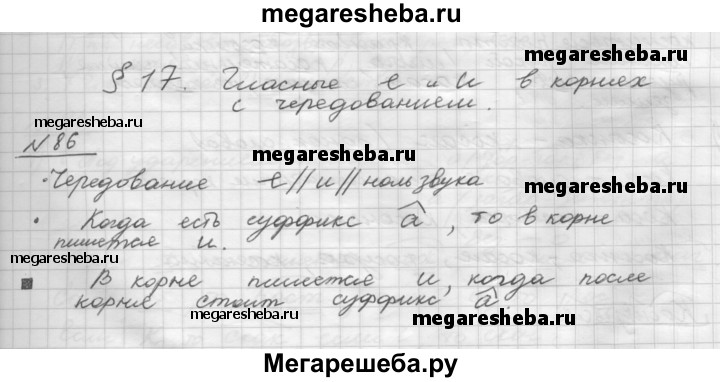 megaresheba.ru
megaresheba.ru
§ 17. Гласные е и и в корнях
с чередованием.
megaresheba.ru
N 86
megaresheba.ru
megaresheba.ru
· Чередование е//и//ноль звука
· Когда есть суффикс а, то в корне
пишется и.
megaresheba.ru
В корне пишется и, когда после
корня стоит суффикс а.
megaresheba.ru
Мегарешеба.ру